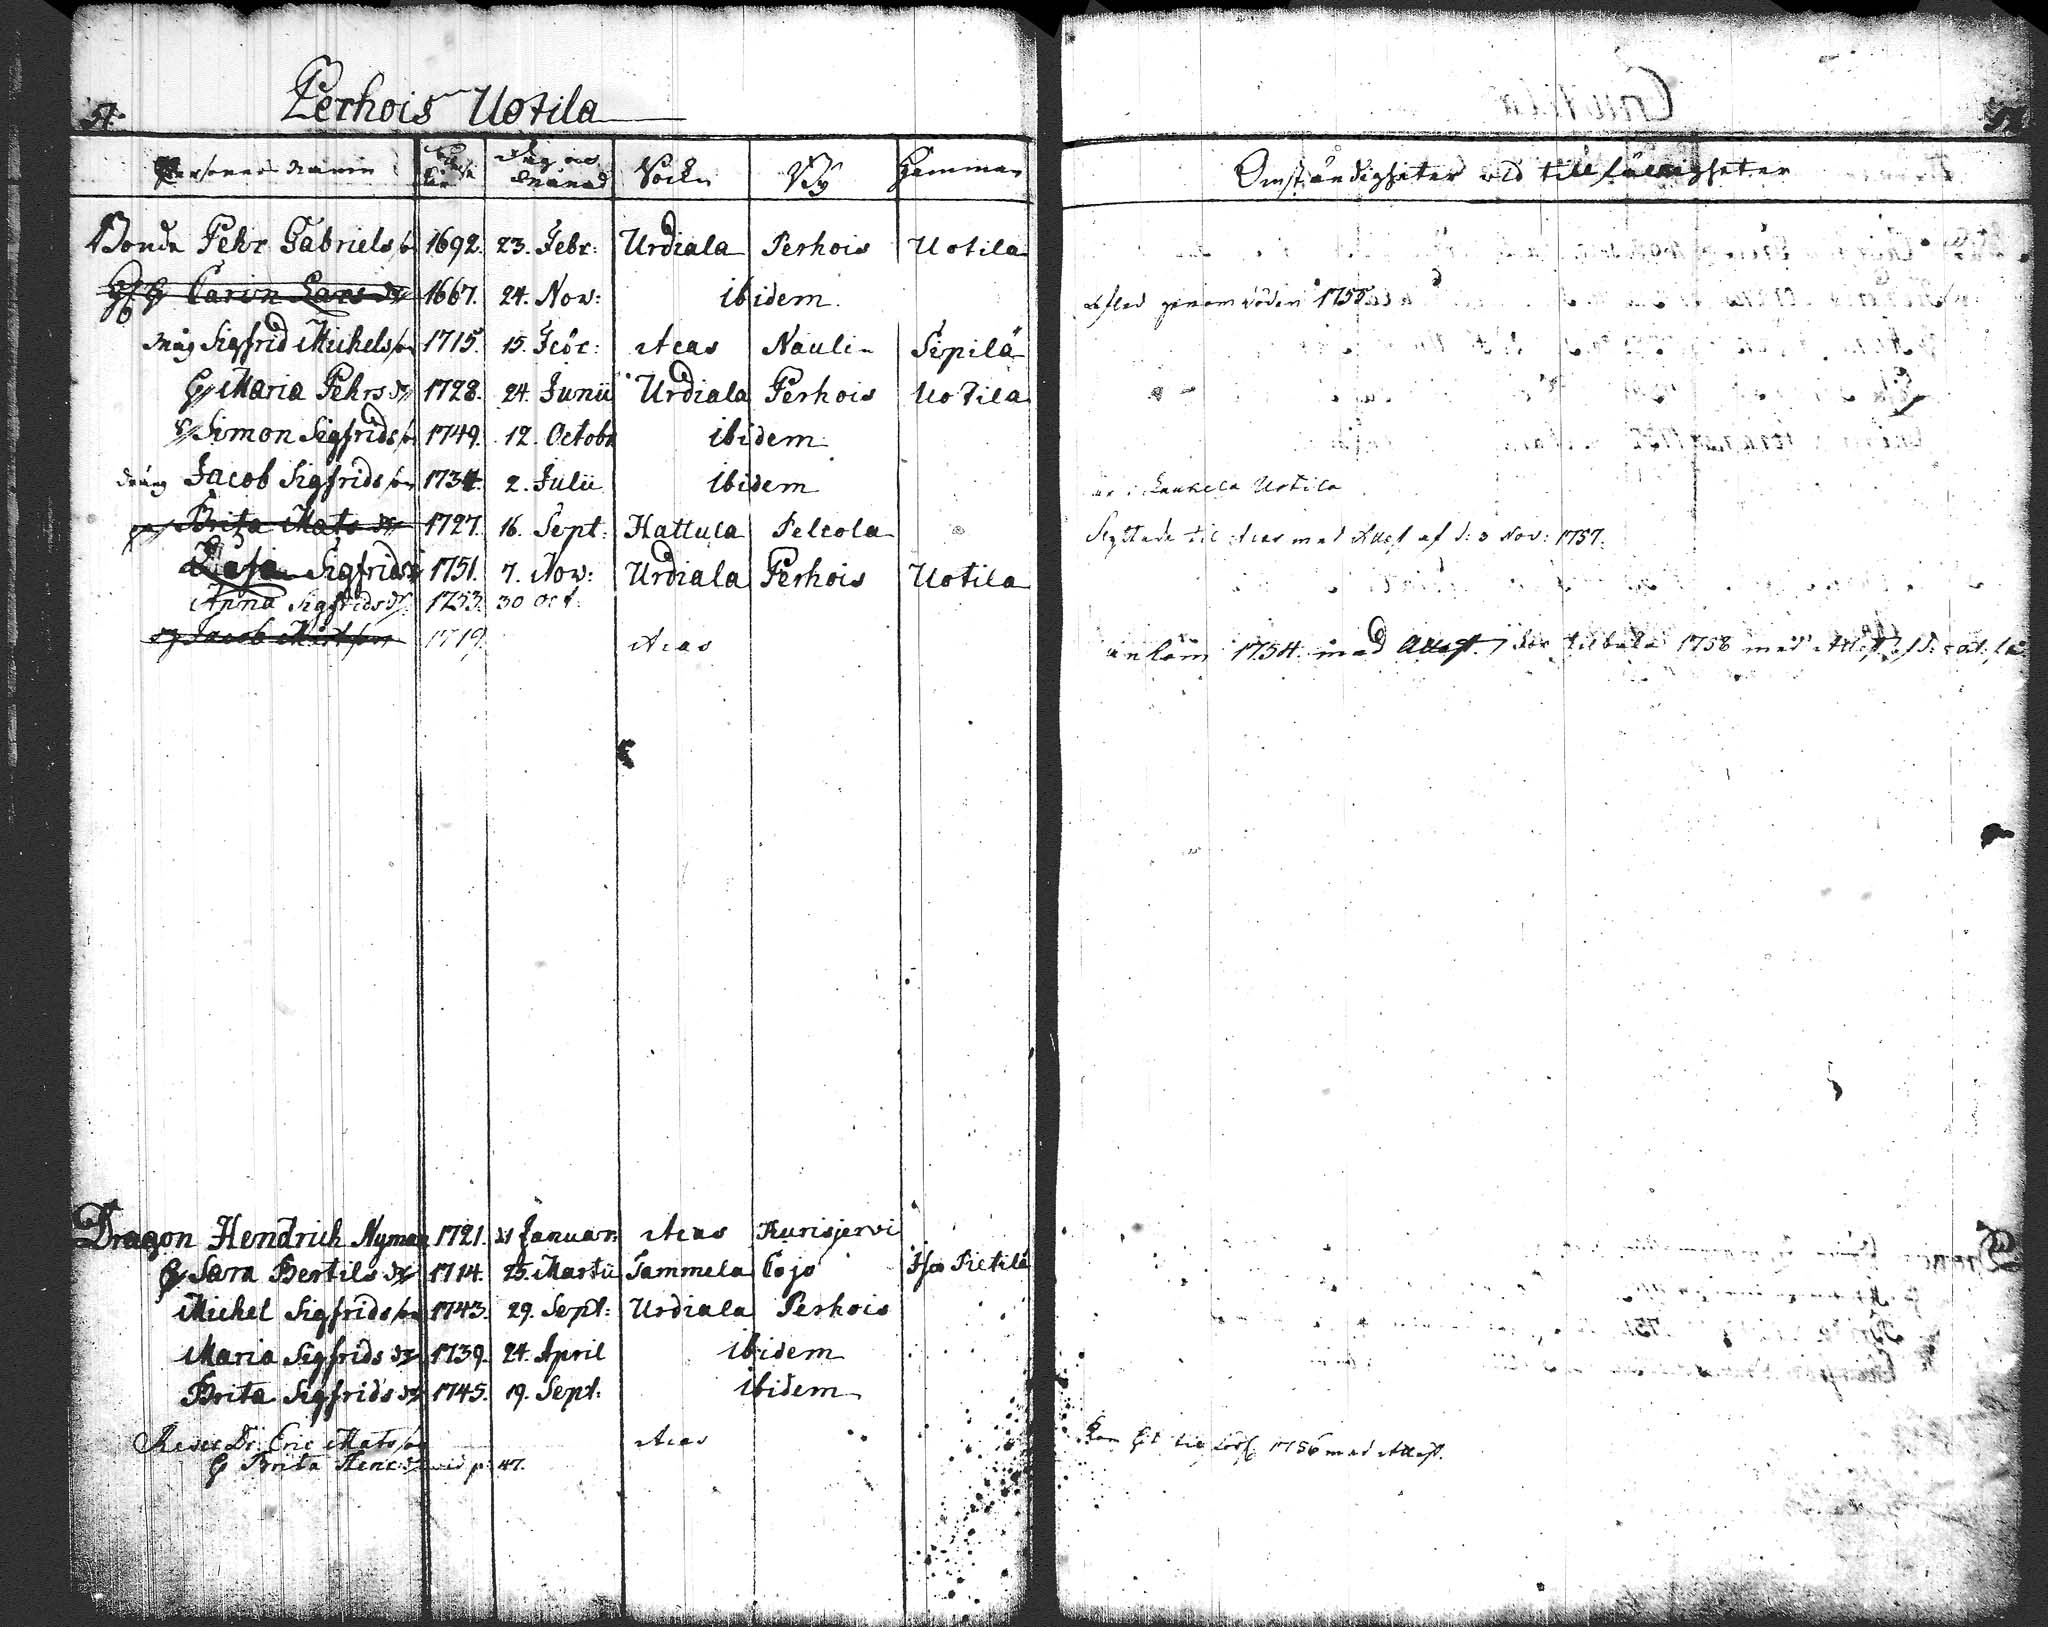 51. Perhois Uotila
Personers Namn Födelse år Dag och Månad Sockn By Hemman
Bonde Pehr Gabriels son 1692. 23. Febr: Urdiala Perhois Uotila
Carin Lars dr 1667. 24. Nov: ibidem
Måg Sigfrid Michels son 1715. 15. Febr: Acas Nauli Sipilä
H Maria Pehrs dr 1728. 24. Junii Urdiala Perhois Uotila
S Simon Sigfrids son 1749. 12. Octobr ibidem
dräng Jacob Sigfrids son 1734. 2. Julii ibidem
Brita Mats dr 1727. 16. Sept: Hattula Pelcola
Sigfrids dr 1751. 7. Nov: Urdiala Perhois Uotila
Anna Sigfrids dr: 1753. 30 Oct:
Jacob Mats son 1719. Acas
Dragon Hendrich Nyman 1721. Januar: Acas Kurisjervi
H Sara Bertils dr 1714. 25. Martii Tammela Cojo Iso Pietilä
Michel Sigfrids son 1743. 29. Sept: Urdiala Perhois
Maria Sigfrids dr 1739. 24. April ibidem
Brita Sigfrids dr 1745. 19. Sept: ibidem
Reserv Dr. Eric Mats son Acas
H Brita Henr: dr vid p. 47.
Omständigheter vid tillfälligheter
afled genom döden 1758
är i Laukela Uotila
flyttade til Acas med Attest af d: 3 Nov: 1757.
ankom 1754. med Attest. tilbaka 1758 med Attest af d:
Kom hit 1756 med Attest.